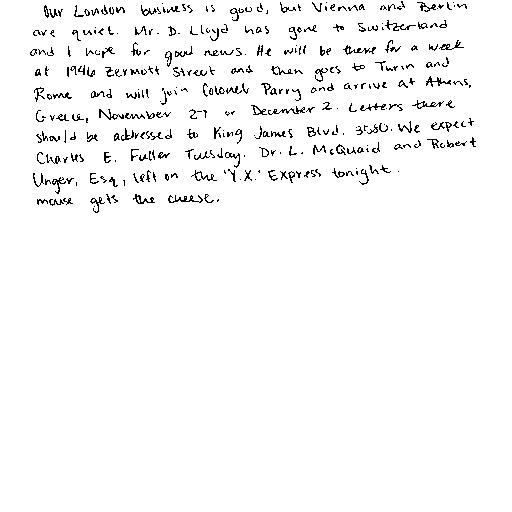 Our London business is good, but Vienna and Berlin
are quiet. Mr. D. Lloyd has gone to Switzerland
and I hope for good news. He will be there for a week
at 1946 Zermott Street and then goes to Turin and
Rome and will join Colonel Parry and arrive at Athens,
Greece, November 27 or December 2. Letters there
should be addressed to King James Blvd. 3580. We expect
Charles E. Fuller Tuesday. Dr. L. McQuaid and Robert
Unger, Esq., left on the "Y.X." Express tonight.
mouse gets the cheese.